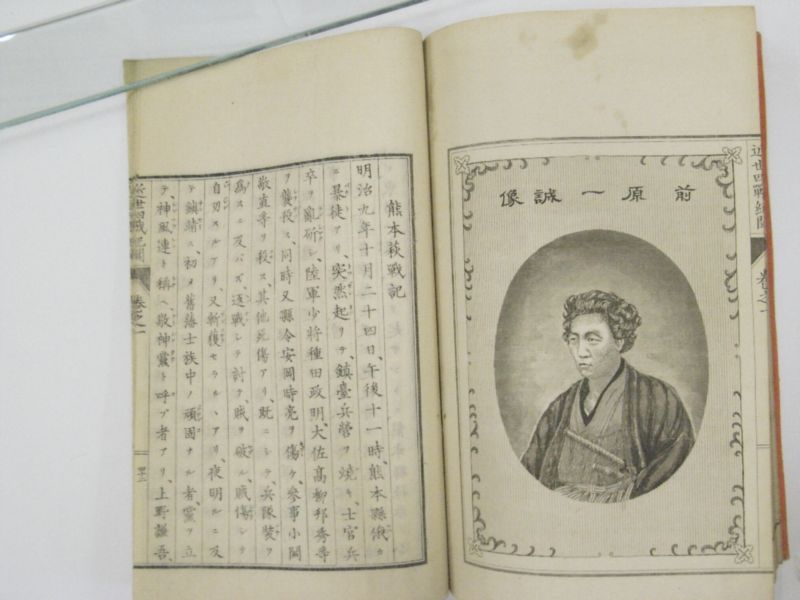 近世四戰紀聞 卷之一
前原一誠像
熊本萩戰記
明治九年十月二十四日、午後十一時、熊本縣俄カ
ニ暴徒アリ、突然起リテ、鎮臺兵營ヲ燒キ、士官兵
卒ヲ亂斫シ、陸軍少將種田政明、大佐髙柳邦秀等
ヲ襲殺ス、同時又縣令安岡時亮ヲ傷ケ、參事小關
敬直等ヲ殺ス、其他死傷アリ、既ニシテ、兵隊裝ヲ
爲スニ及バズ、逐戰シテ討ク、賊ヲ破ル、賊傷シテ
自刃スルアリ、又斬獲セラルヽアリ、夜明ルニ及
テ鎮靖ス、初メ舊藩士族中ノ頑固ナル者、黨ヲ立
テ、神風連ト稱ヘ、敬神黨ト呼ブ者アリ、上野謙吾、
近世四戰紀聞 卷之一